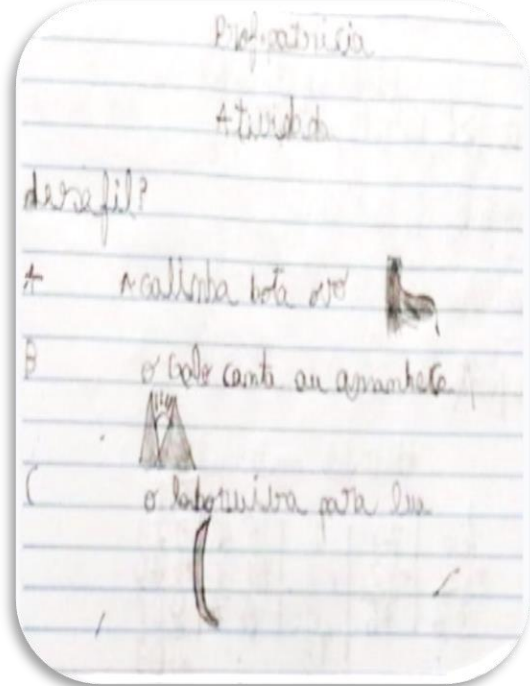 Prof.patricia
Atividade
desefil?
A Acalinha bota ovo
B o galo canta au amanhece
C o lobo uiva para lua